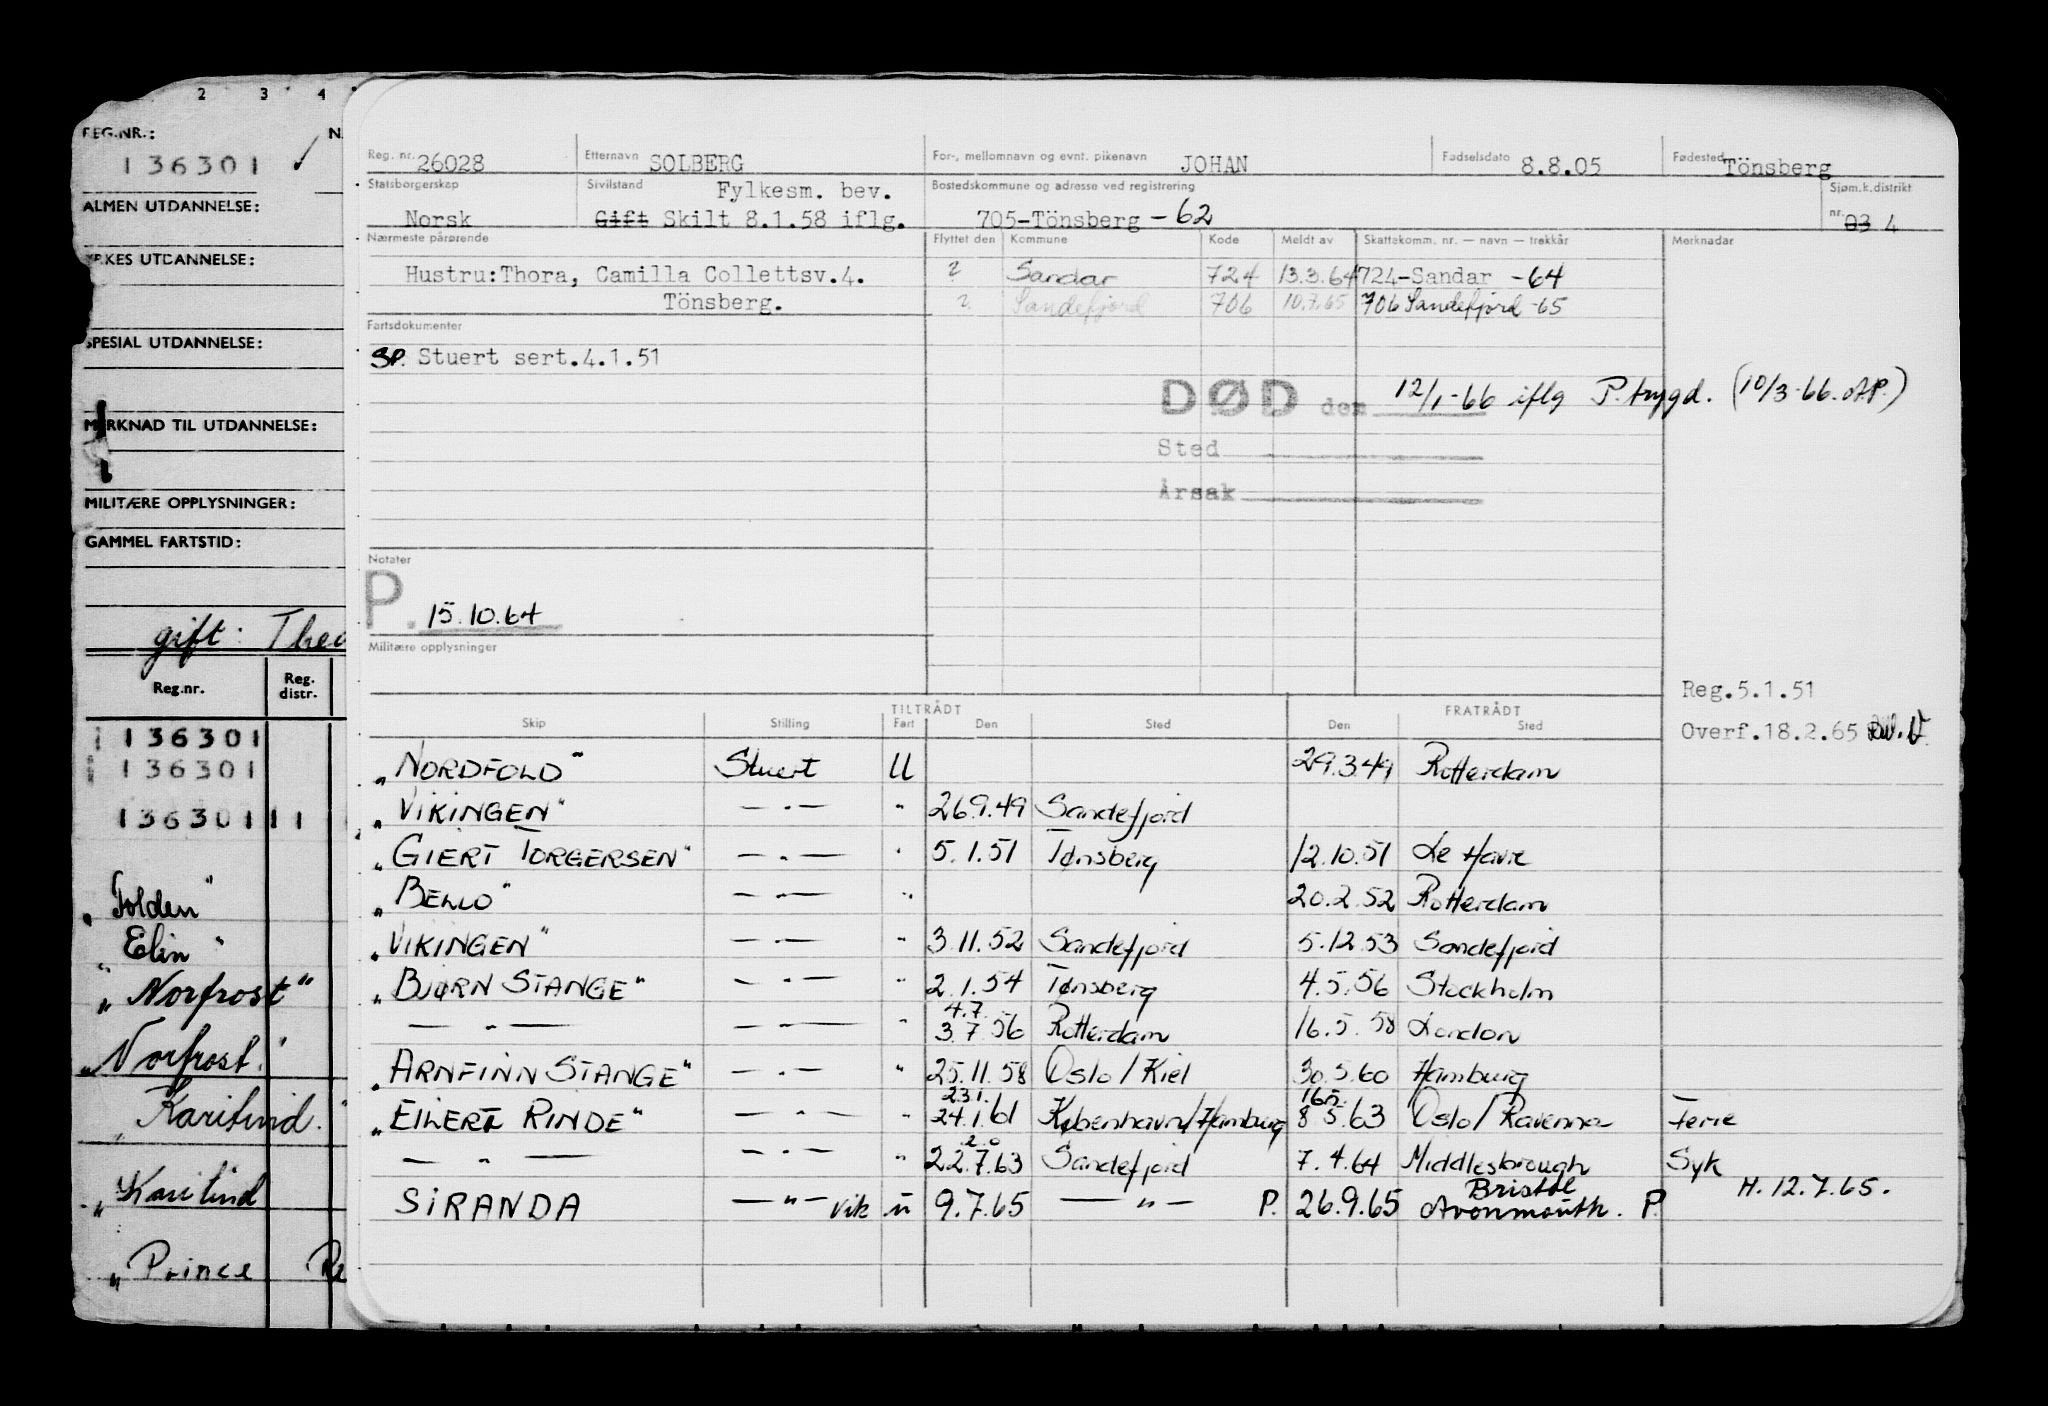 2 3 4
REG.NR.: N
136301 ✓
ALMEN UTDANNELSE:
YRKES UTDANNELSE:
SPESIAL UTDANNELSE:
MERKNAD TIL UTDANNELSE:
MILITÆRE OPPLYSNINGER:
GAMMEL FARTSTID:
gift: Theo
Reg.nr. Reg. distr.
136301
136301
136301 11
„Folden"
„Elin"
„Norfrost"
„Norfrost."
„Karitind."
„Karitind
„Prince Re
Reg. nr. 26028 Etternavn SOLBERG For-, mellomnavn og evnt. pikenavn JOHAN Fødselsdato 8.8.05 Fødested Tönsberg
Statsborgerskap Sivilstand Fylkesm. bev. Bostedskommune og adresse ved registrering Sjøm.k.distrikt
Norsk Gift Skilt 8.1.58 iflg. 705-Tönsberg -62 nr. 03 4
Nærmeste pårørende Flyttet den Kommune Kode Meldt av Skattekomm. nr. — navn — trekkår Merknader
Hustru:Thora, Camilla Collettsv.4. ? Sandar 724 13.3.64 724-Sandar -64
Tönsberg. ? Sandefjord 706 10.7.65 706 Sandefjord -65
Fartsdokumenter
SP. Stuert sert.4.1.51
DØD den 12/1-66 iflg P.trygd. (10/3-66. AP.)
Sted
Årsak
Notater
P. 15.10.64
Militære opplysninger
Reg.5.1.51
TILTRÅDT FRATRÅDT
Skip Stilling Fart Den Sted Den Sted
Overf.18.2.65
„NORDFOLD" Stuert U 29.3.49 Rotterdam
„VIKINGEN" — . — " 26.9.49 Sandefjord
„GIERT TORGERSEN" — . — " 5.1.51 Tønsberg 12.10.51 Le Havre
„BELLO" — . — " 20.2.52 Rotterdam
„VIKINGEN" — . — " 3.11.52 Sandefjord 5.12.53 Sandefjord
„BJØRN STANGE" — . — " 2.1.54 Tønsberg 4.5.56 Stockholm
4.7.
— " — — . — " 3.7.56 Rotterdam 16.5.58 London
„ARNFINN STANGE" — . — " 25.11.58 Oslo/Kiel 30.5.60 Hamburg
23.1. 16.5.
„EILERT RINDE" — . — " 24.1.61 København/Hamburg 8.5.63 Oslo/Ravenna Ferie
2.0
— " — — . — " 22.7.63 Sandefjord 7.4.64 Middlesbrough Syk
Bristol H. 12.7.65.
SIRANDA — " — vik U 9.7.65 — " — P. 26.9.65 Avonmouth. P.